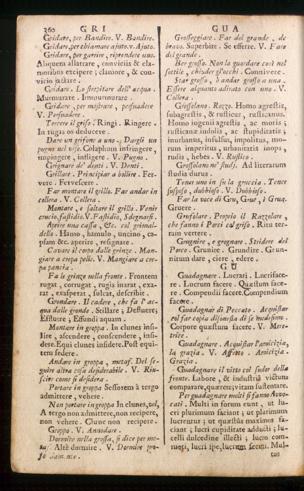 360 GRI
Gridare, per Bandire. V. Bandire.
Gridare, per chiamare ajuto. v. Ajuto.
Gridare, per garrire, riprendere uno.
Aliquem allatrare, convitiis & cla-
moribus excipere; clamore, & con-
viciis
Gridare. Lo strepitar dell' acqua.
Murmurare. Immurmurare.
Gridare, per mostrare, persuadere
V. Persuadere.
Torcere il grifo. Ringi. Ringere.
In rugas os deducere.
Dare un grifone a uno. Dargli un
pugno nel viso. Colaphum infringere,
impingere, infligere. V. Pugno.
Grignare de' denti. V. Denti.
Grillare. Principiar a bollire. Fer-
vere. Fervescere.
Far montare il grillo. Far andar in
collera. V. Collera.
Montare, e saltare il grillo. Venir
cruccio, fastidio. V. Fastidio, Sdegnarsi.
Havere una cassa, &c. col grimal-
dello. Hamo, hamulo, uncino, ca-
psam &c. aperire, resignare.
Cavare il corpo dalle grinze. Man-
giare a crepa pelle. V. Mangiare a cre-
pa pancia.
Fa le grinze nella fronte. Frontem
rugat, corrugat, rugis inarat, exa-
rat, exasperat, sulcat, describit.
Grondare. Il cadere, che fa l'ac-
qua dalle gronde. Stillare; Defluere;
Effluere; Effundi aquam.
Montare in groppa. In clunes insi-
lire, ascendere, conscendere, insi-
dere. Equi clunes insidere. Post equi-
tem sedere.
Andare in groppa, metaf. Del se-
guire altra cosa desiderabile. V. Riu-
scir: come si desidera.
Portare in groppa Sessorem à tergo
admittere, vehere.
Non portare in groppa In clunes, vel,
A tergo non admittere, non recipere,
non vehere. Clune non recipere.
Groppo. V. Annodare.
Dormire nella grossa, si dice per me-
Altè dormire. V. Dormire pro-
GUA
Grosseggiare. Far del grande, de
bravo. Superbire. Se efferre. V. Fare
del grande.
Ber grosso. Non la guardare così nel
sottile, chiuder gl'occhi. Connivere.
Star grosso, e andar grosso a uno.
Essere alquanto adirato con uno. V.
Collera.
Grossolano. Rozzo. Homo agrestis,
subagrestis, & rusticus, rusticanus.
Homo ingenii agrestis, ac moris;
rusticanâ indolis, ac stupiditatis;
inurbanus, insulsus, impolitus, mo-
rum imperitus, urbanitatis inops,
rudis, hebes. V. Rustico.
Grossolano ne' studj. Ad literarum
studia durus.
Tener uno in fu la gruccia. Tener
sospeso, dubbioso. V. Dubbioso.
Far la voce di Gru, Grue, e Gruga.
Gruere.
Grufolare. Proprio il Razzolare,
che fanno i Porci col grifo. Ritu ter-
ram vertere.
Grugnire, e grugnare, Stridere del
Porco. Grunire. Grundire. Grun-
nitum dare, ciere, edere.
GU
Guadagnare. Lucrari. Lucriface-
re. Lucrum facere. Quæstum face-
re. Compendii facere. Compendium
facere.
Guadagnar di Peccato. Acquistar
col far copia disonesta di se medesimo.
Corpore quæstum facere. V. Mere-
trice.
Guadagnare. Acquistar l'amicizia,
la grazia. V. Affetto. Amicizia.
Grazia.
Guadagnare il vitto col sudor della
fronte. Labore, & industriâ victum
comparare, quærere; vitam sustentare.
Per guadagnare molti si fanno Avvo-
cati. Multi in forum eunt, ut lu-
cri plurimum faciant; ut plurimum
lucrentur; ut quæstus maximos fa-
ciant; lucri cupiditate adducti; lu-
celli dulcedine illecti; lucro com-
moti, lucri spe, lucrum secuti. Mul-
tos